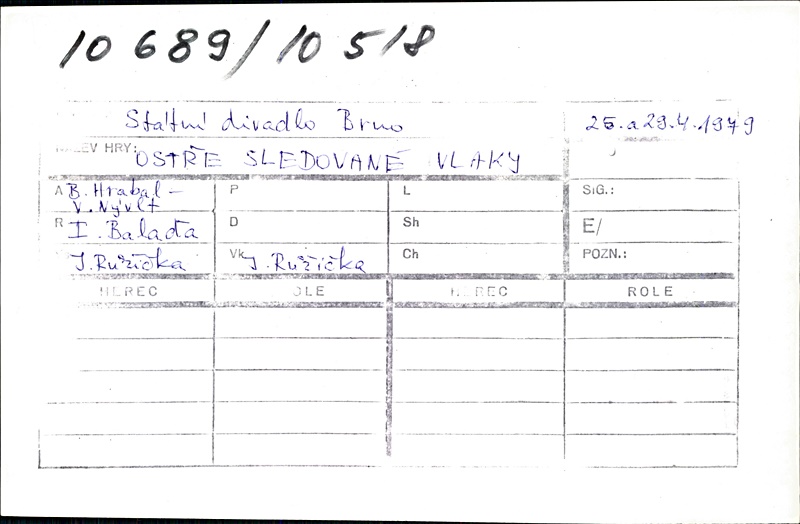 10 689/10 518
Státní divadlo Brno
a 29.4.1979
EV HRY: OSTŘE SLEDOVANÉ VLAKY
A B. Hrabal – V. Nývlt
P
L
SIG.:
R I. Balaďa
D
Sh
E/
J. Růžička
Vk J. Růžička
Ch
POZN.:
HEREC
OLE
HEREC
ROLE